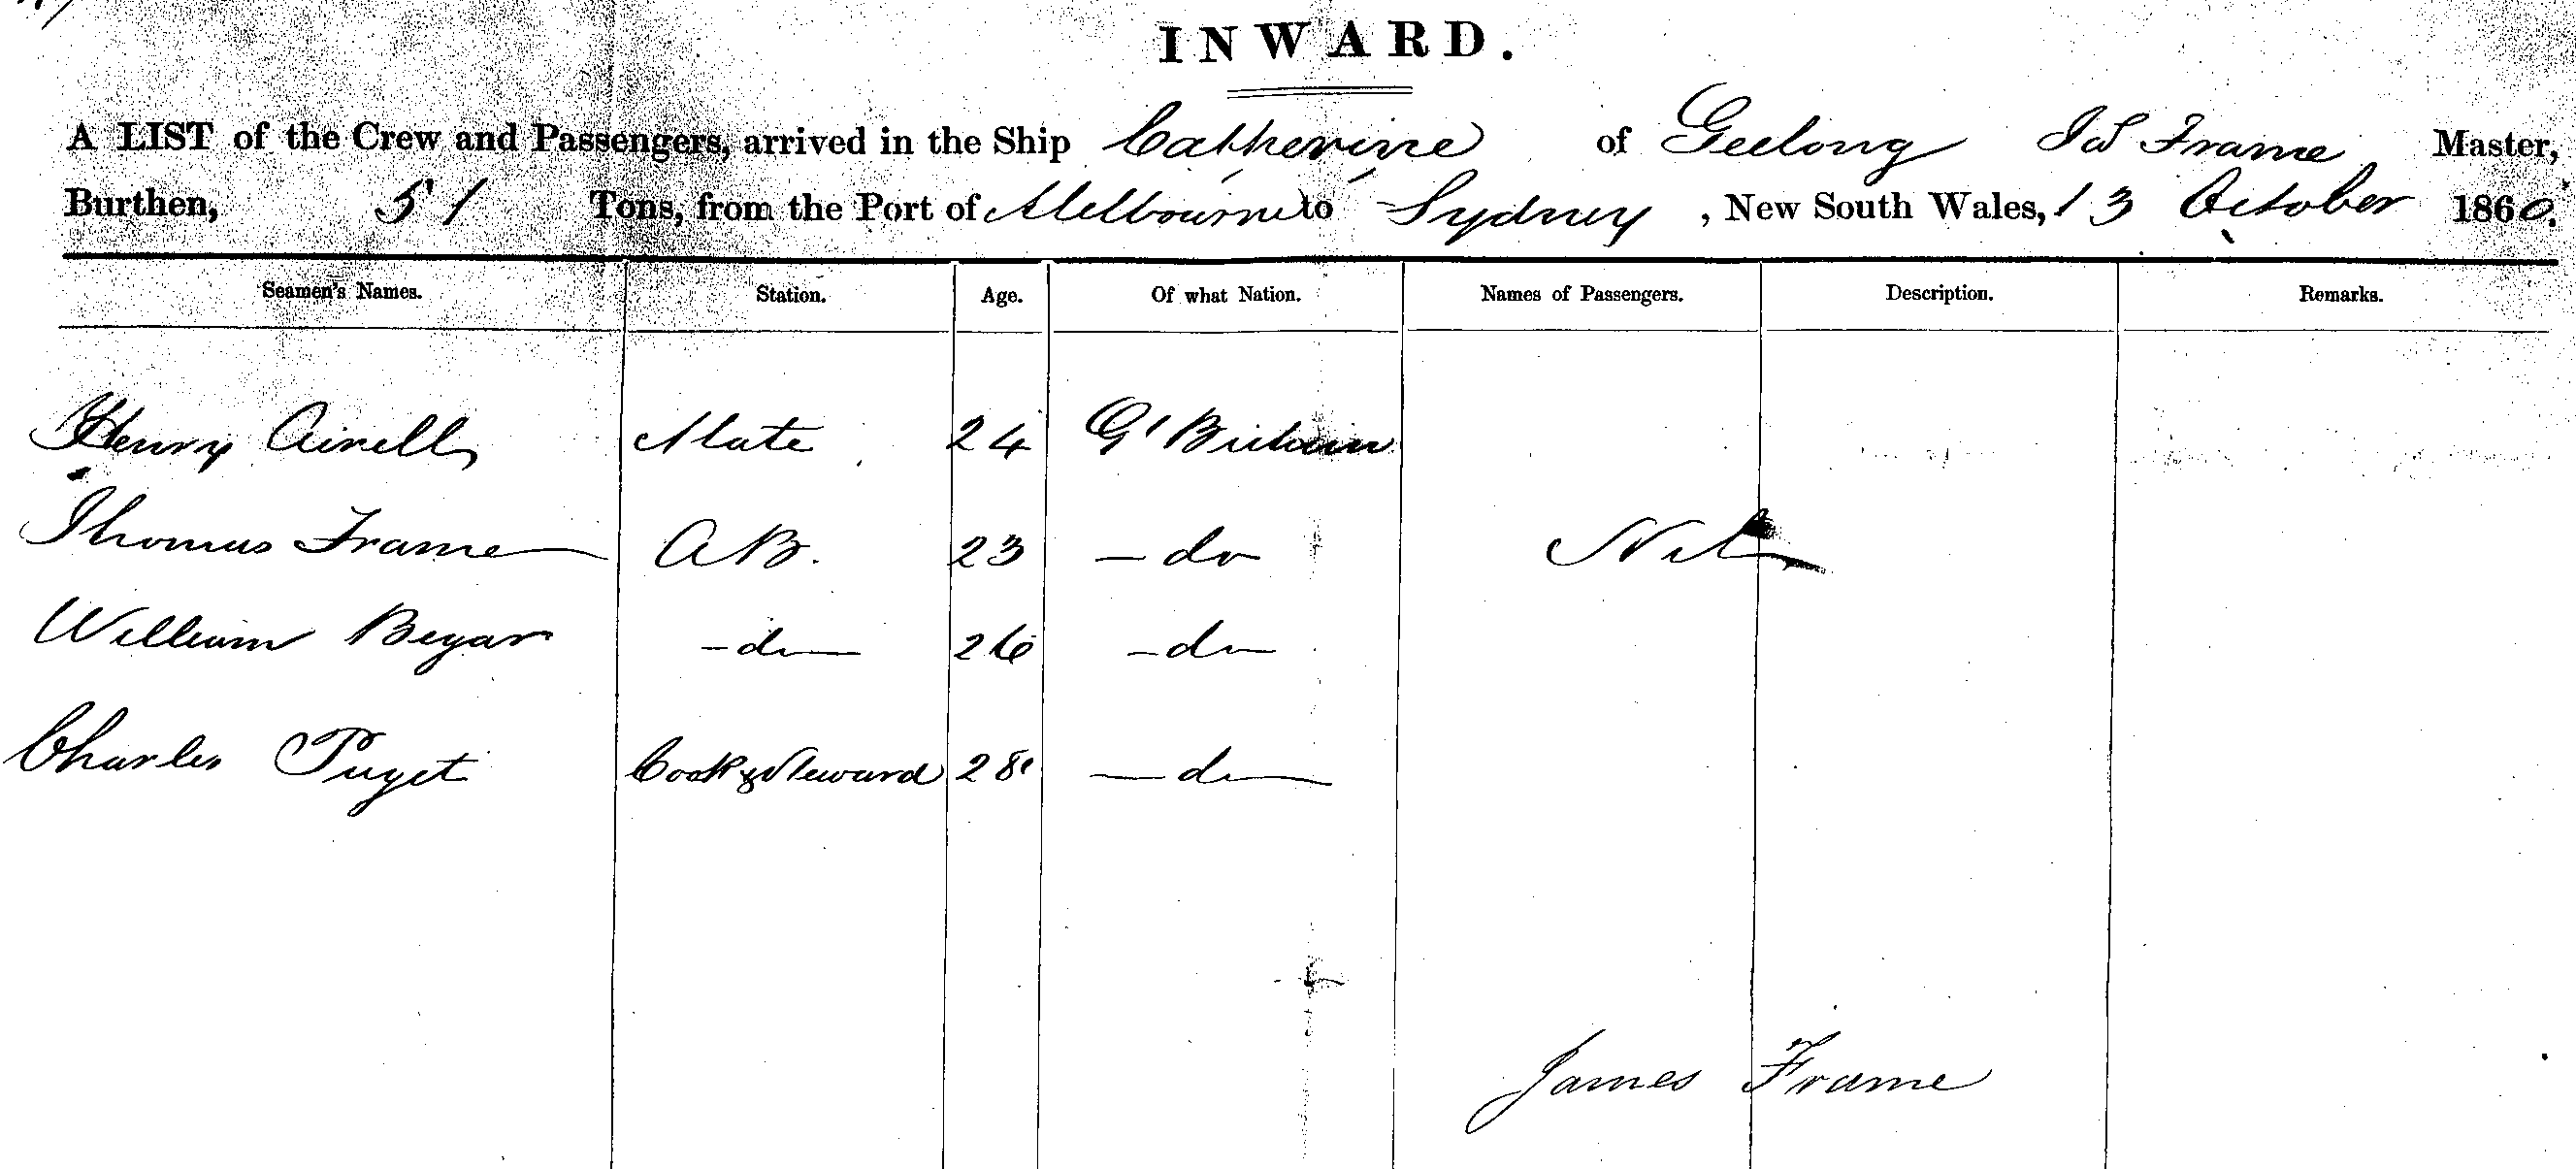 INWARD.
A LIST of the Crew and Passengers, arrived in the Ship Catherine of Geelong Jas Frame Master,
Burthen, 51 Tons, from the Port of Melbourne to Sydney, New South Wales, 13 October 1860.
Seamen's Names. Station. Age. Of what Nation. Names of Passengers. Description. Remarks.
Henry Mate 24 Gt Britain
Thomas Frame A B. 23 - do Nil
William Begar - do 26 - do
Charles Puget Cook & Steward 28 - do
James Frame